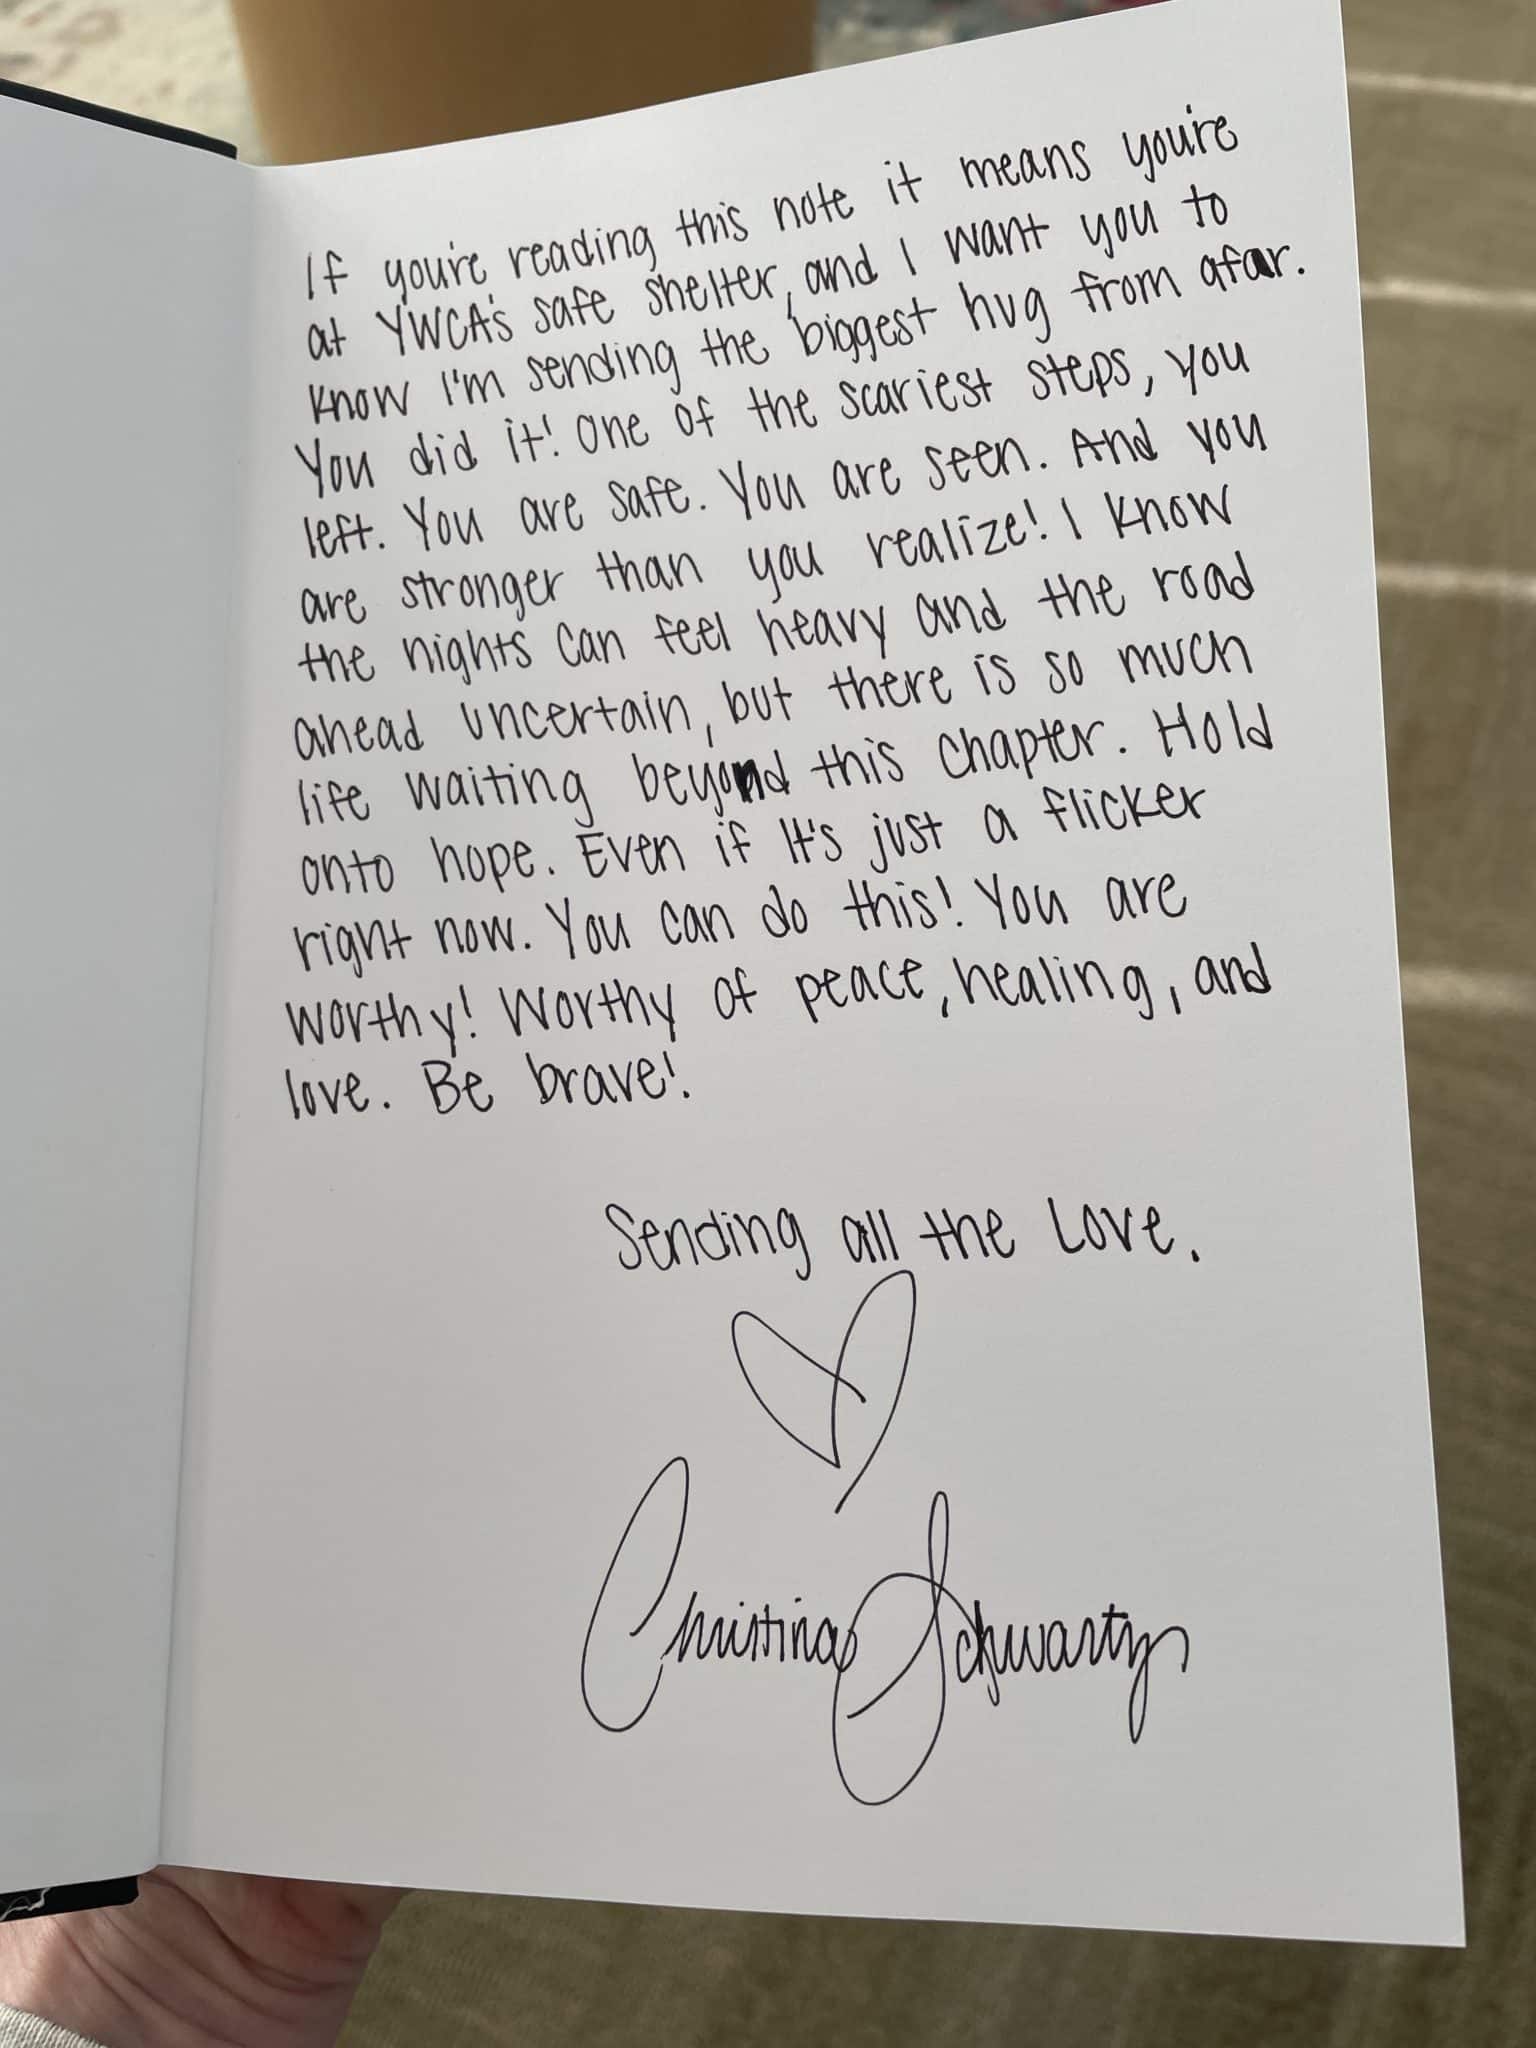 If you're reading this note it means you're
at YWCA's safe shelter, and I want you to
know I'm sending the biggest hug from afar.
You did it! One of the scariest steps, you
left. You are safe. You are seen. And you
are stronger than you realize! I know
the nights can feel heavy and the road
ahead uncertain, but there is so much
life waiting beyond this chapter. Hold
onto hope. Even if It's just a flicker
right now. You can do this! You are
worthy! Worthy of peace, healing, and
love. Be brave!
Sending all the Love.
Christina Schwartz